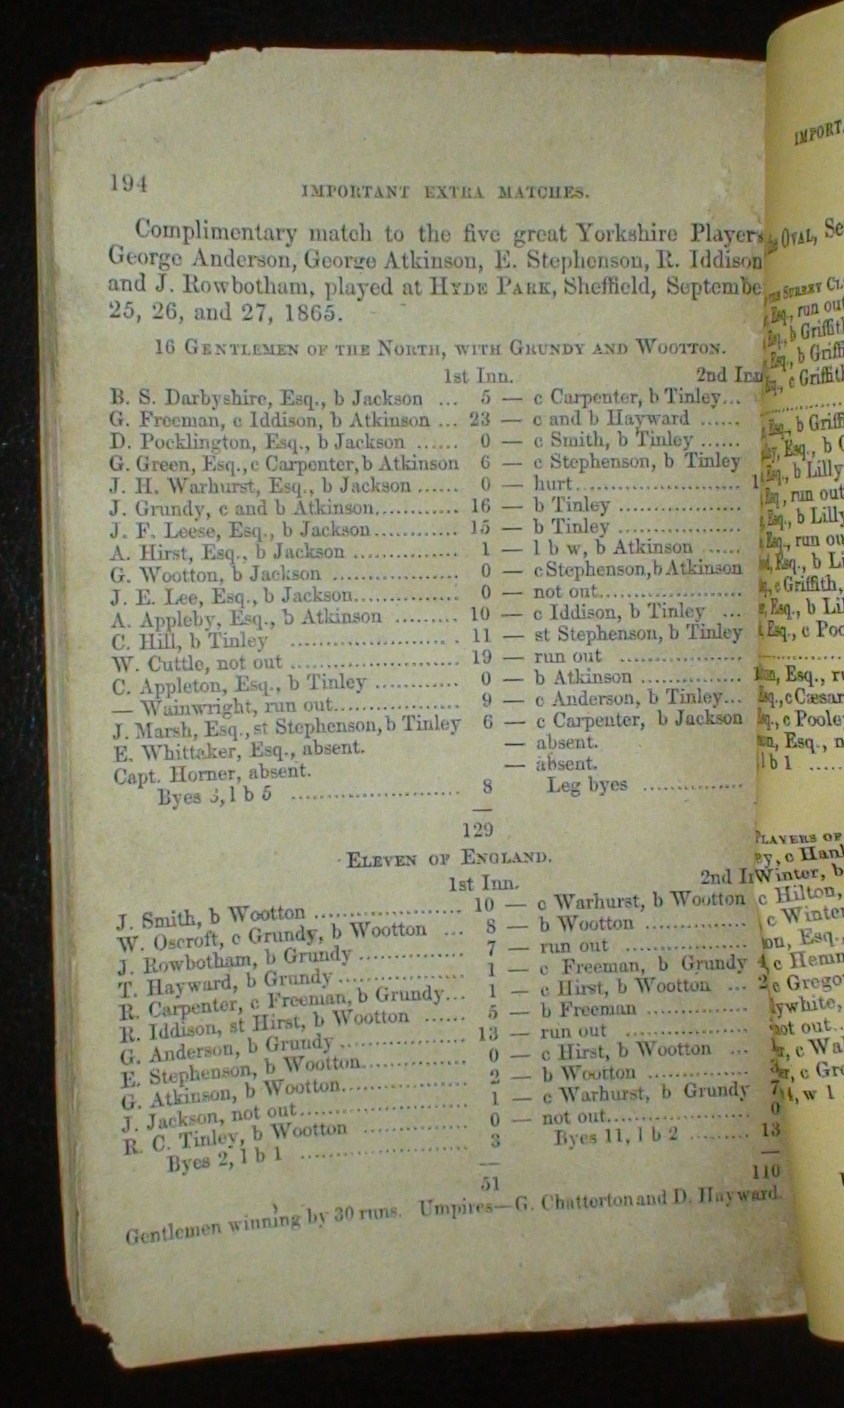 194
IMPORTANT EXTRA MATCHES.
Complimentary match to the five great Yorkshire Players
George Anderson, George Atkinson, E. Stephenson, R. Iddison
and J. Rowbotham, played at HYDE PARK, Sheffield, Septembe
25, 26, and 27, 1865.
16 GENTLEMEN OF THE NORTH, WITH GRUNDY AND WOOTTON.
1st Inn. 2nd Inn
B. S. Darbyshire, Esq., b Jackson ... 5 — c Carpenter, b Tinley...
G. Freeman, c Iddison, b Atkinson ... 23 — c and b Hayward ......
D. Pocklington, Esq., b Jackson ...... 0 — c Smith, b Tinley ......
G. Green, Esq., c Carpenter, b Atkinson 6 — c Stephenson, b Tinley
J. H. Warhurst, Esq., b Jackson ...... 0 — hurt........................ 1
J. Grundy, c and b Atkinson............ 16 — b Tinley ..................
J. F. Leese, Esq., b Jackson............ 15 — b Tinley ..................
A. Hirst, Esq., b Jackson ............... 1 — l b w, b Atkinson ......
G. Wootton, b Jackson .................. 0 — c Stephenson, b Atkinson
J. E. Lee, Esq., b Jackson............... 0 — not out.....................
A. Appleby, Esq., b Atkinson ......... 10 — c Iddison, b Tinley ...
C. Hill, b Tinley ........................ 11 — st Stephenson, b Tinley
W. Cuttle, not out ........................ 19 — run out ..................
C. Appleton, Esq., b Tinley ............ 0 — b Atkinson ...............
— Wainwright, run out.................. 9 — c Anderson, b Tinley...
J. Marsh, Esq., st Stephenson, b Tinley 6 — c Carpenter, b Jackson
E. Whittaker, Esq., absent. — absent.
Capt. Horner, absent. — absent.
Byes 3, l b 5 ........................ 8 Leg byes ...............
129
ELEVEN OF ENGLAND.
1st Inn. 2nd I
J. Smith, b Wootton ..................... 10 — c Warhurst, b Wootton
W. Oscroft, c Grundy, b Wootton ... 8 — b Wootton ...............
J. Rowbotham, b Grundy ............... 7 — run out ..................
T. Hayward, b Grundy .................. 1 — c Freeman, b Grundy 4
R. Carpenter, c Freeman, b Grundy... 1 — c Hirst, b Wootton ... 2
R. Iddison, st Hirst, b Wootton ...... 5 — b Freeman ...............
G. Anderson, b Grundy .................. 13 — run out ..................
E. Stephenson, b Wootton............... 0 — c Hirst, b Wootton ...
G. Atkinson, b Wootton.................. 2 — b Wootton ...............
J. Jackson, not out........................ 1 — c Warhurst, b Grundy 7
R. C. Tinley, b Wootton ............... 0 — not out..................... 0
Byes 2, l b 1 ........................ 3 Byes 11, l b 2 ......... 13
51 110
Gentlemen winning by 30 runs. Umpires—G. Chatterton and D. Hayward.
IMPORT
OVAL, Se
run out
b Griffit
b Griffi
c Griffith
b Griff
Esq., b
b Lilly
run out
b Lilly
run ou
Esq., b Li
c Griffith,
Esq., b Lil
Esq., c Poo
Esq., r
c Cæsar
c Poole
Esq., n
l b 1 .....
PLAYERS OF
c Hanl
Winter, b
c Hilton,
c Winte
Esq.,
c Hemm
c Grego
ywhite,
not out..
c Wa
c Gre
w 1